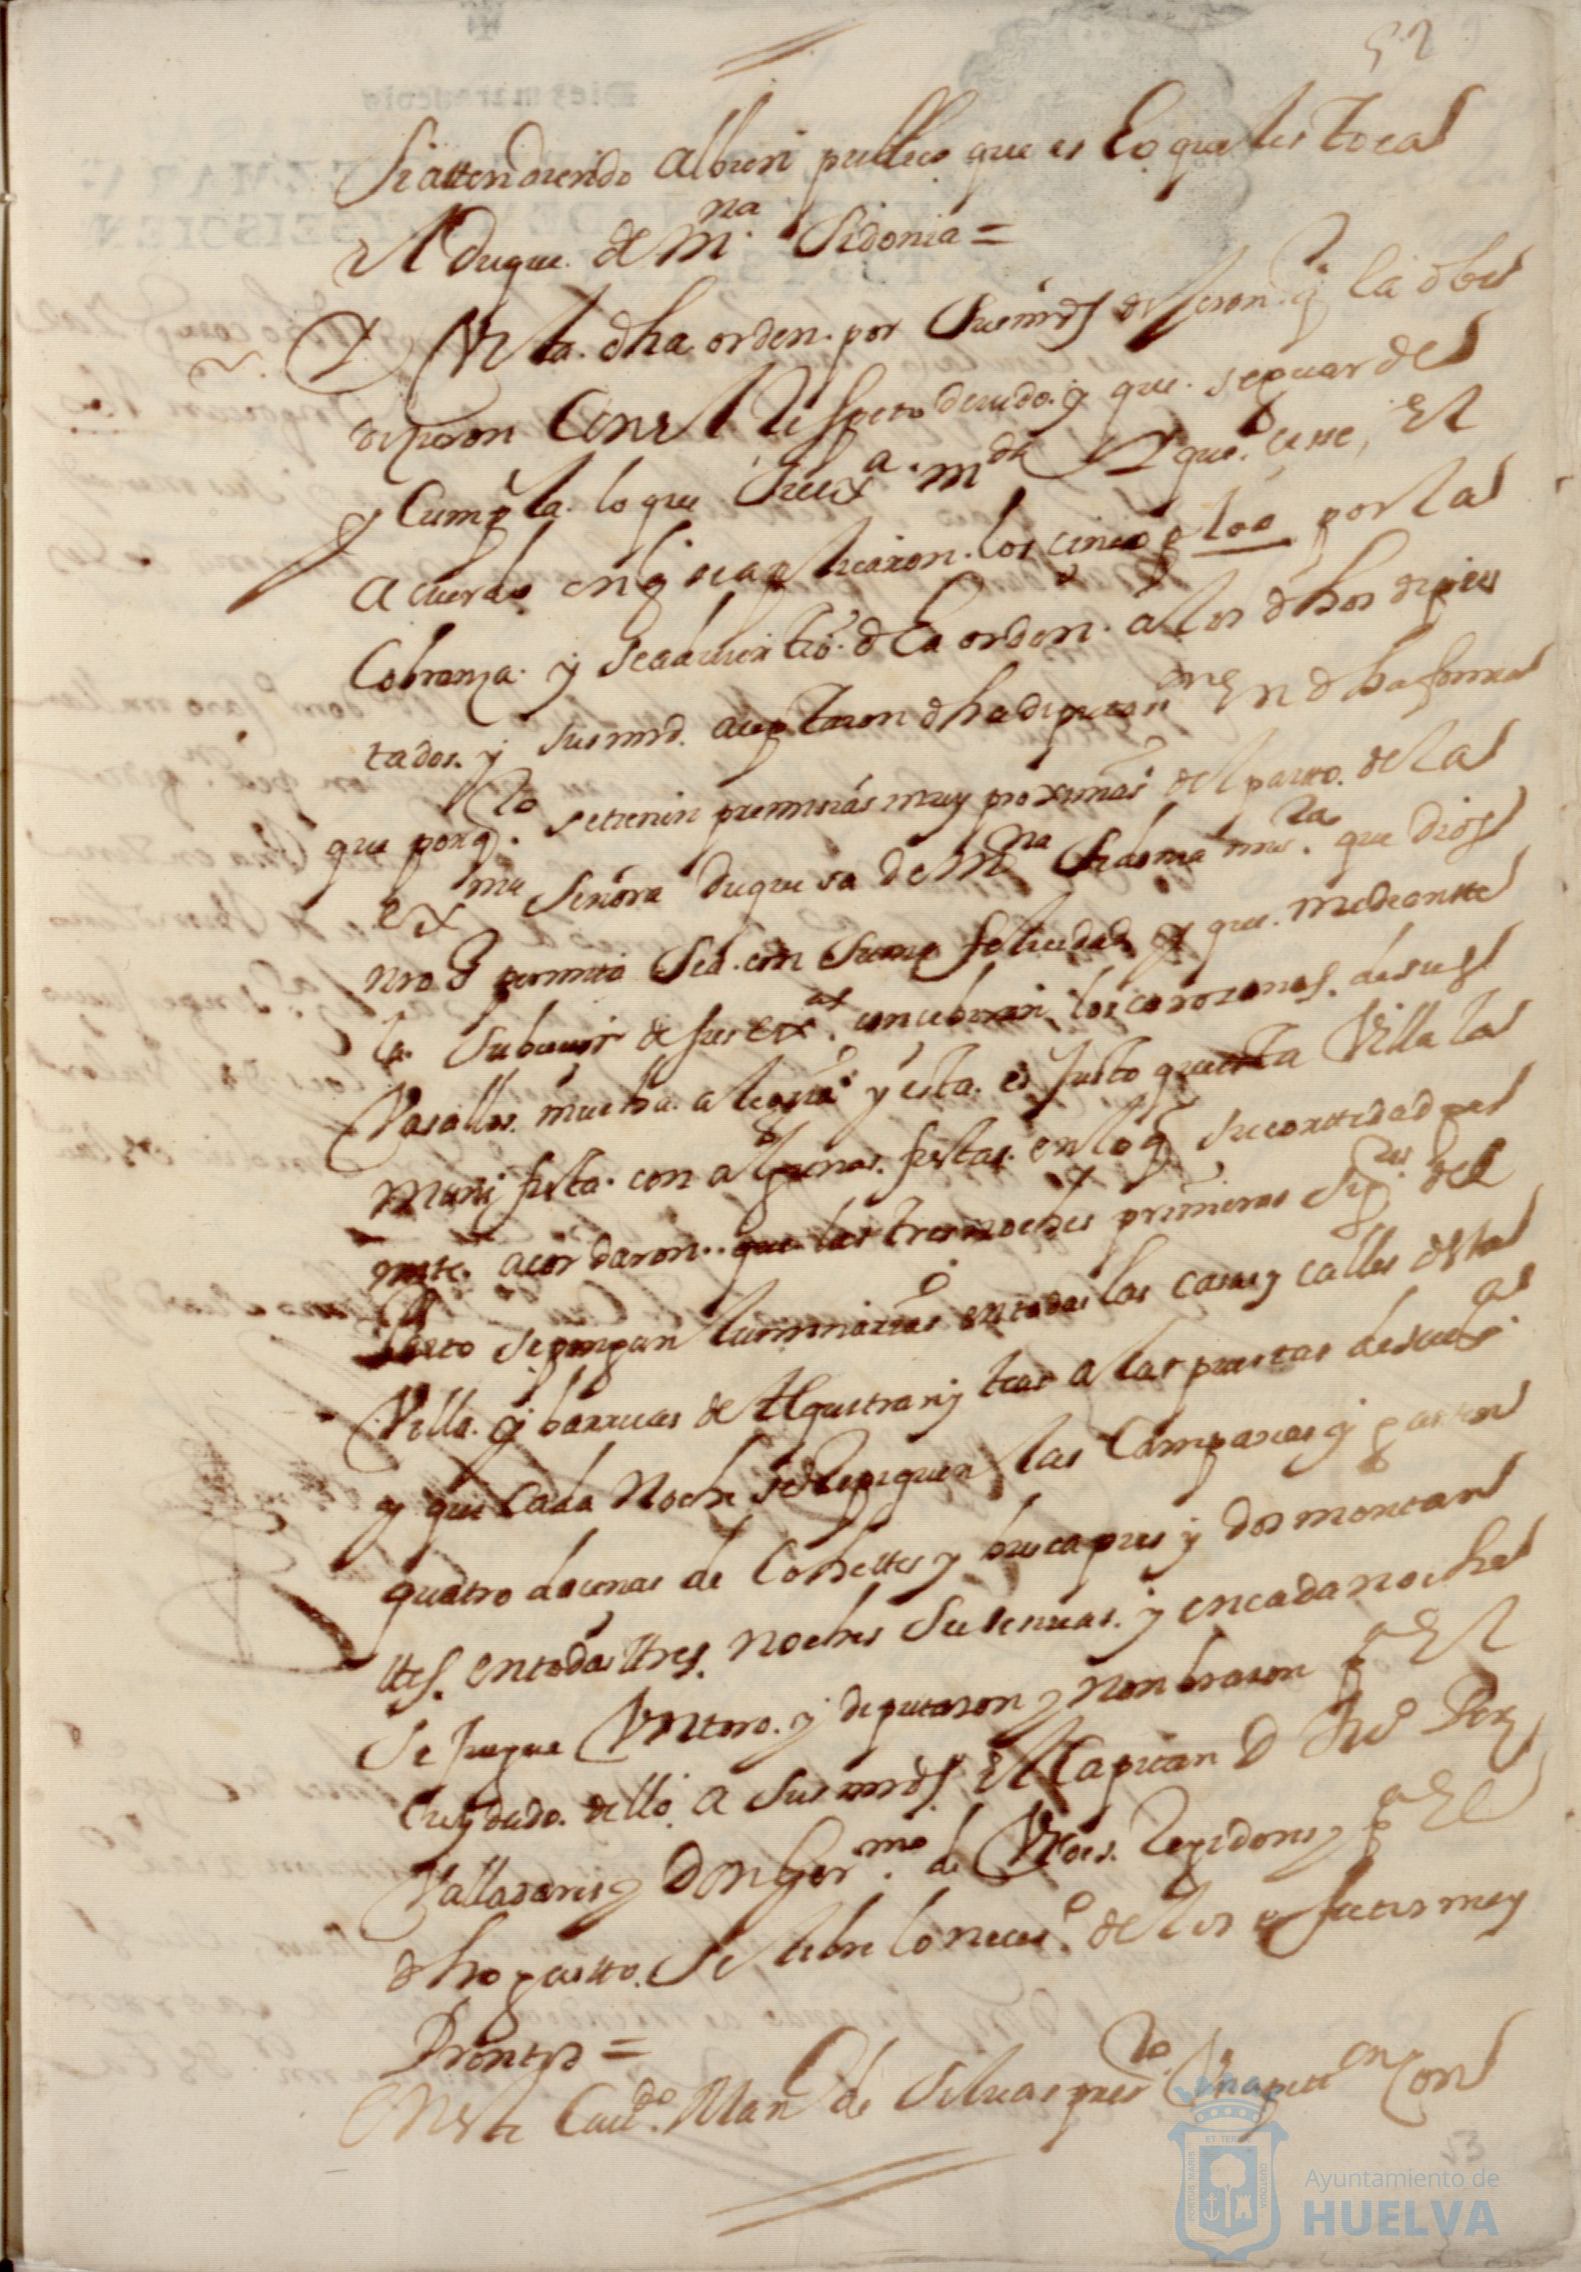 52
Se attendiendo albien publico que es lo que les toca
el Duque de Mna Sidonia =
Vista dha orden por susmrds dixeron y la obe
dezieron Con el Respeto deuido y que se guarde
y Cumpla lo que Su exa mda y que cesse, el
acuerdo en q se aplicaron los cinco por la
Cobranza y se aduirtio dha orden a los dhos dipu
tados y susmrd aceptaron dha diputaon en dha forma
que por qto se tienin premisias muy proximas del partto de la
exma Señora Duquesa de Mna Sidonia mi sra que Dios
nro sr permita Sea con Suma felicidad y que mediantte
la de sus exas conciben los corazones de sus
Vasallos mucha alegria y esta es Justo que esta Villa la
manifiesta con algunas fiestas en lo q su cortedad per
mite acordaron que las tres noches primeras Sigtes del
partto se pongan luminarias en todas las casas y calles desta
Villa y barricas de Alquitran y teas a las puertas de su exa
y que Cada Noche se Repiquen las Campanas y gasten
quatro docenas de Cohettes y buscapies y dos montan
ttes en todas ttres noches Sucesiuas y en cada noche
Se Juegue Vn toro y deputaron y Nombraron pa El
Cuydado dello a Susmrds El Capitan D Po Perez
Valladares y Don Germo de Rexidores y pa El
dho gastto Se libre lo neceso de los efectos mas
Promptos =
En este Caudo Manl de Siluas presto Vna petion Con
Ayuntamiento de
HUELVA